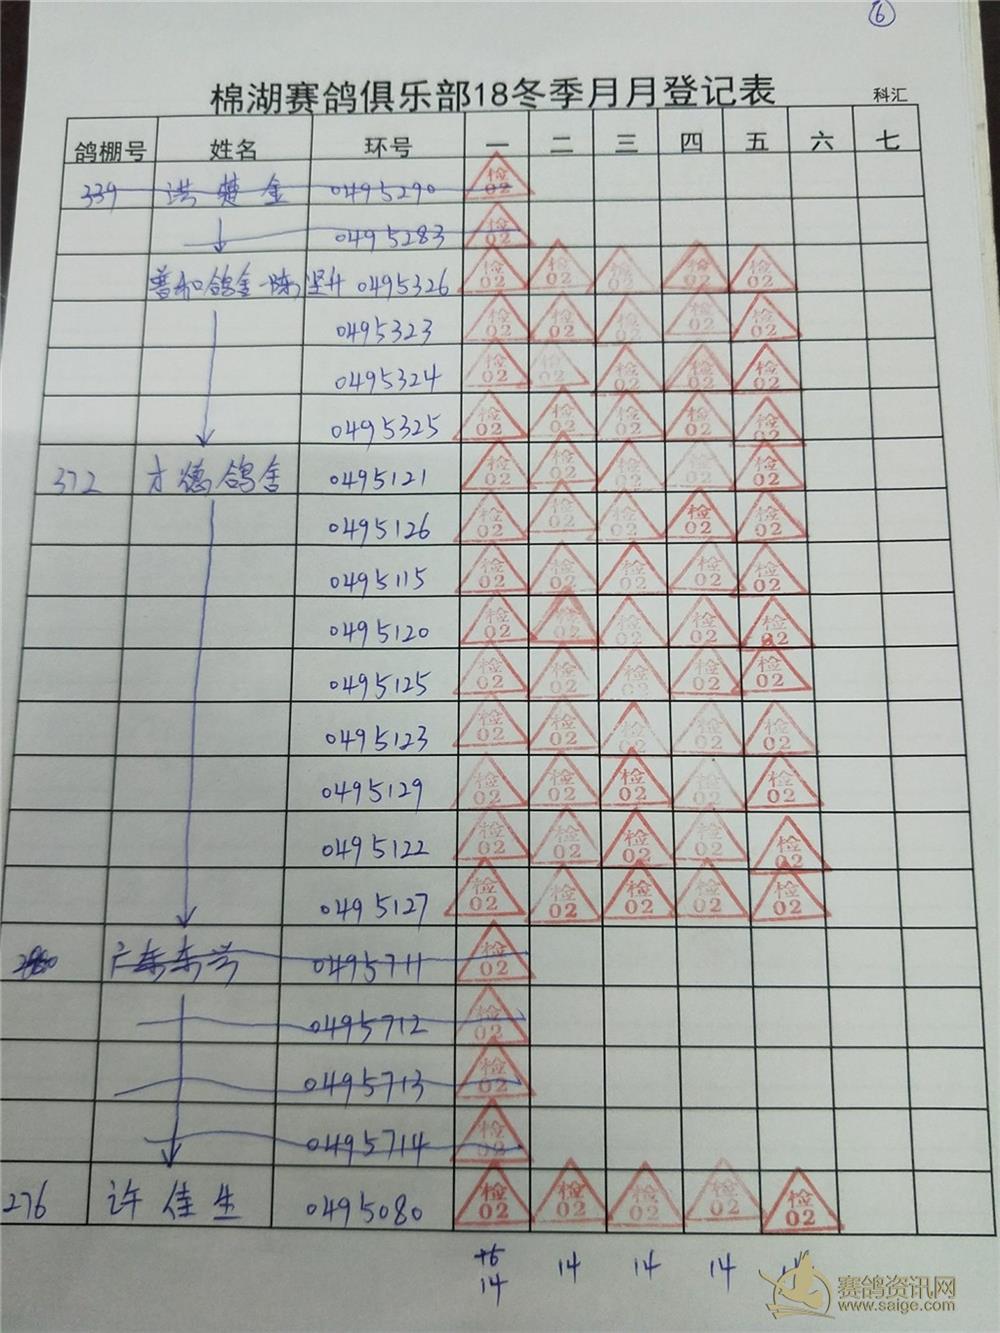 6
棉湖赛鸽俱乐部18冬季月月登记表
科汇
鸽棚号 姓名 环号 一 二 三 四 五 六 七
339 洪楚金 0495290 检02
0495283 检02
普和鸽舍-陈坚升 0495326 检02 检02 检02 检02 检02
0495323 检02 检02 检02 检02 检02
0495324 检02 检02 检02 检02 检02
0495325 检02 检02 检02 检02 检02
372 才德鸽舍 0495121 检02 检02 检02 检02 检02
0495126 检02 检02 检02 检02 检02
0495115 检02 检02 检02 检02 检02
0495120 检02 检02 检02 检02 检02
0495125 检02 检02 检02 检02 检02
0495123 检02 检02 检02 检02 检02
0495129 检02 检02 检02 检02 检02
0495122 检02 检02 检02 检02 检02
0495127 检02 检02 检02 检02 检02
广东东兴 0495711 检02
0495712 检02
0495713 检02
0495714 检02
276 许佳生 0495080 检02 检02 检02 检02 检02
14 14 14 14
赛鸽资讯网
www.saige.com